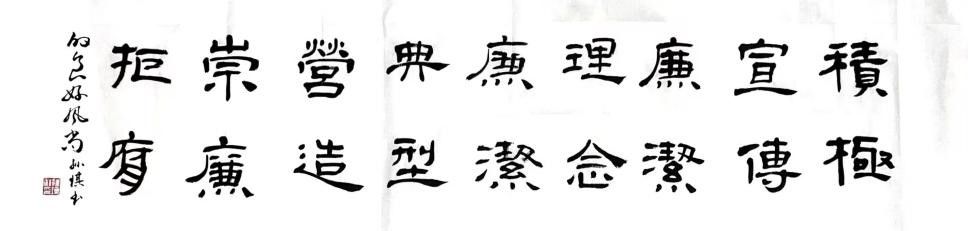 積極
宣傳
廉潔
理念
廉潔
典型
營造
崇廉
拒腐
的良好风尚 孙 书